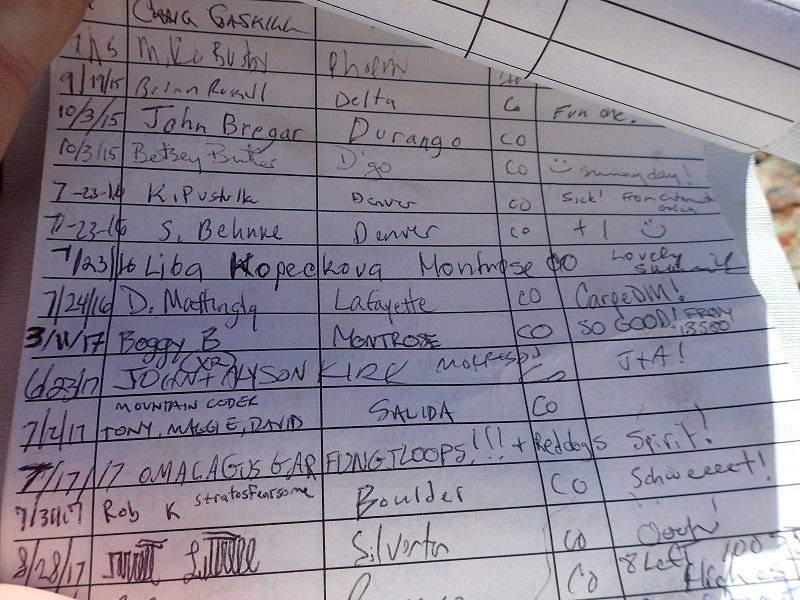 CRAIG GASKILL
15 Mike Busby Phoenix
9/19/15 Brian Russell Delta Co Fun one.
10/3/15 John Bregar Durango CO
10/3/15 Betsey Butler D'go Co sunny day!
7-23-16 K. Pustulka Denver CO Sick! From
7-23-16 S. Behnke Denver CO + 1
7/23/16 Liba Kopeckova Montrose CO Lovely summit
7/24/16 D. Mattingly Lafayette CO Carpe DM!
3/11/17 Boggy B MONTROSE CO SO GOOD! FROM 13580
6/23/17 JOHN + ALYSON KIRK Co J+A!
MOUNTAIN CODER
7/2/17 TONY, MAGGIE, DAVID SALIDA Co
7/17/17 + Reddogs Spirit!
7/31/17 Rob K stratosfearsome Boulder CO Schweeeet!
8/28/17 Silverton CO Oooh!
Co 8 Left 100